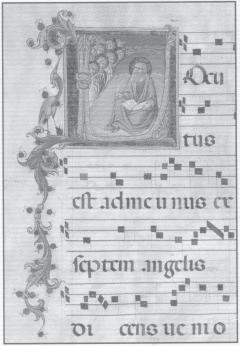 Locu
tus
est ad me unus ex
septem angelis
di cens ue ni o